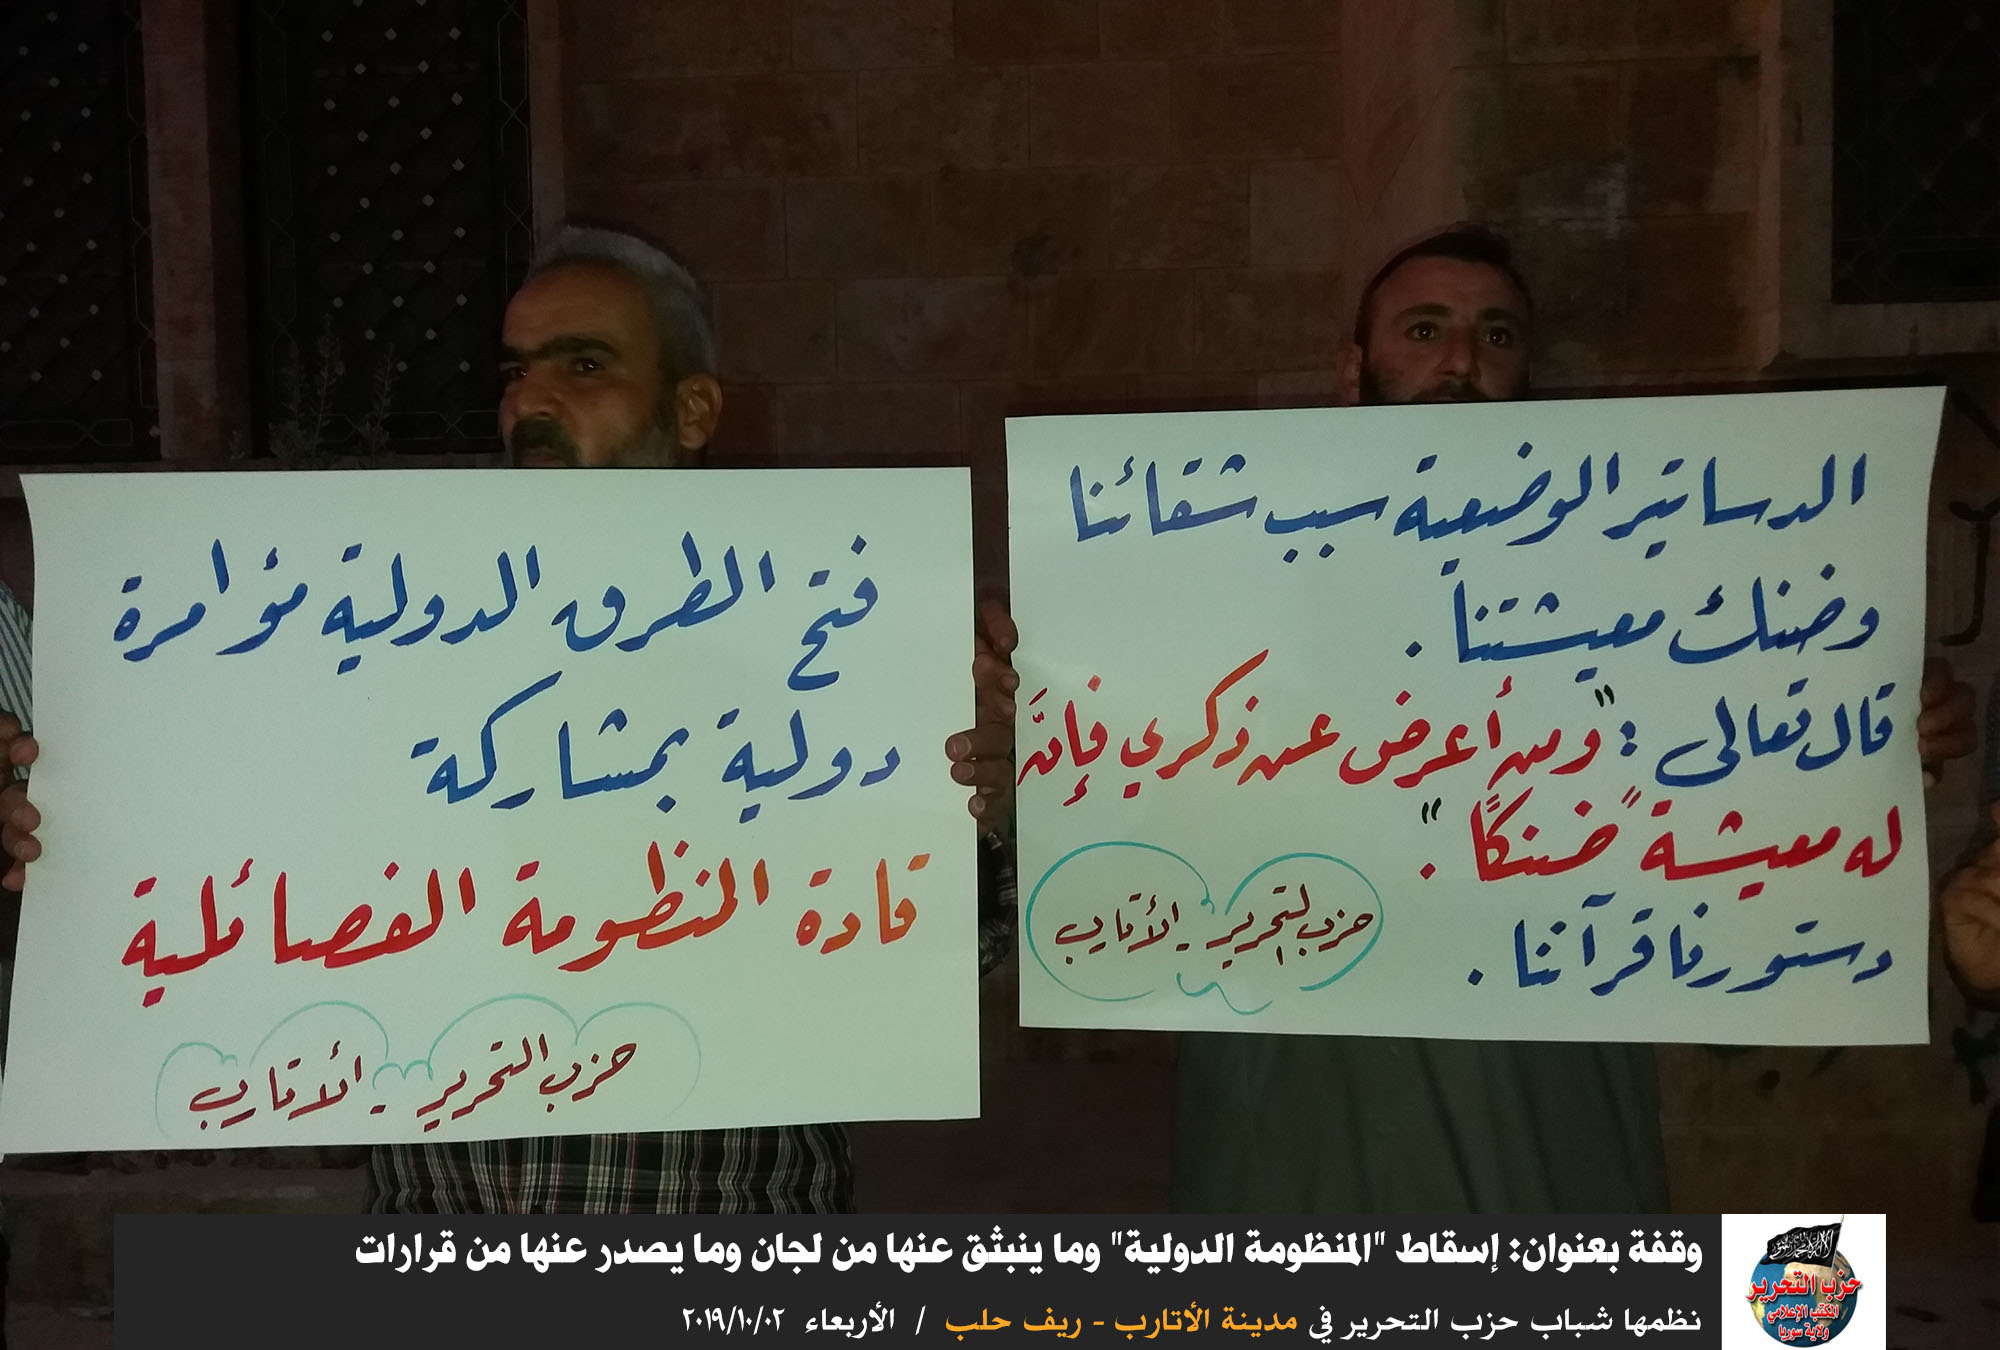 الدساتير الوضعية سبب شقائنا
وضنك معيشتنا .
قال تعالى : "ومن أعرض عن ذكري فإنَّ
له معيشةً ضنكًا".
دستورنا قرآننا .
حزب التحرير - الأتارب
فتح الطرق الدولية مؤامرة
دولية بمشاركة
قادة المنظومة الفصائلية
حزب التحرير - الأتارب
وقفة بعنوان: إسقاط "المنظومة الدولية" وما ينبثق عنها من لجان وما يصدر عنها من قرارات
نظمها شباب حزب التحرير في مدينة الأتارب - ريف حلب / الأربعاء ٢٠١٩/١٠/٠٢
حزب التحرير
المكتب الإعلامي
ولاية سوريا